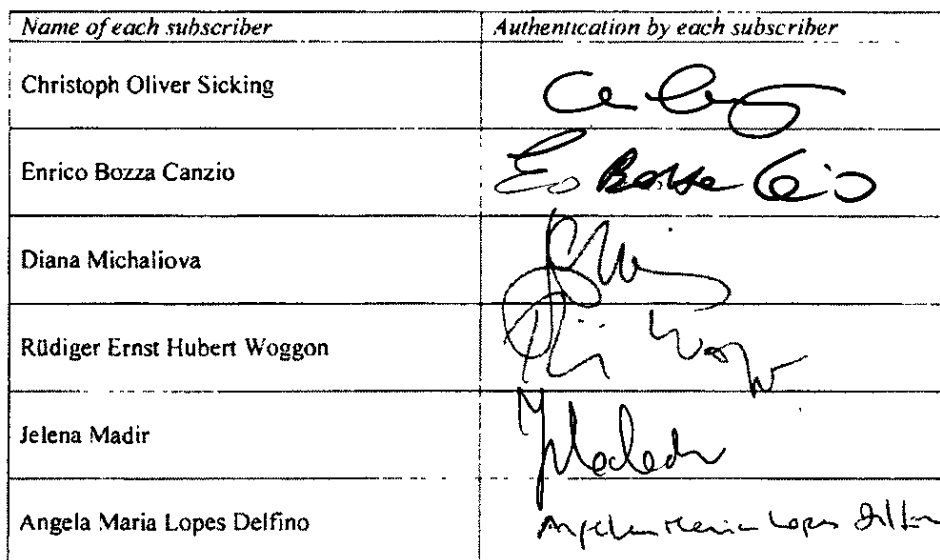 Name of each subscriber Authentication by each subscriber
Christoph Oliver Sicking
Enrico Bozza Canzio
Diana Michaliova
Rüdiger Ernst Hubert Woggon
Jelena Madir
Angela Maria Lopes Delfino Angela Maria Lopes Delfino